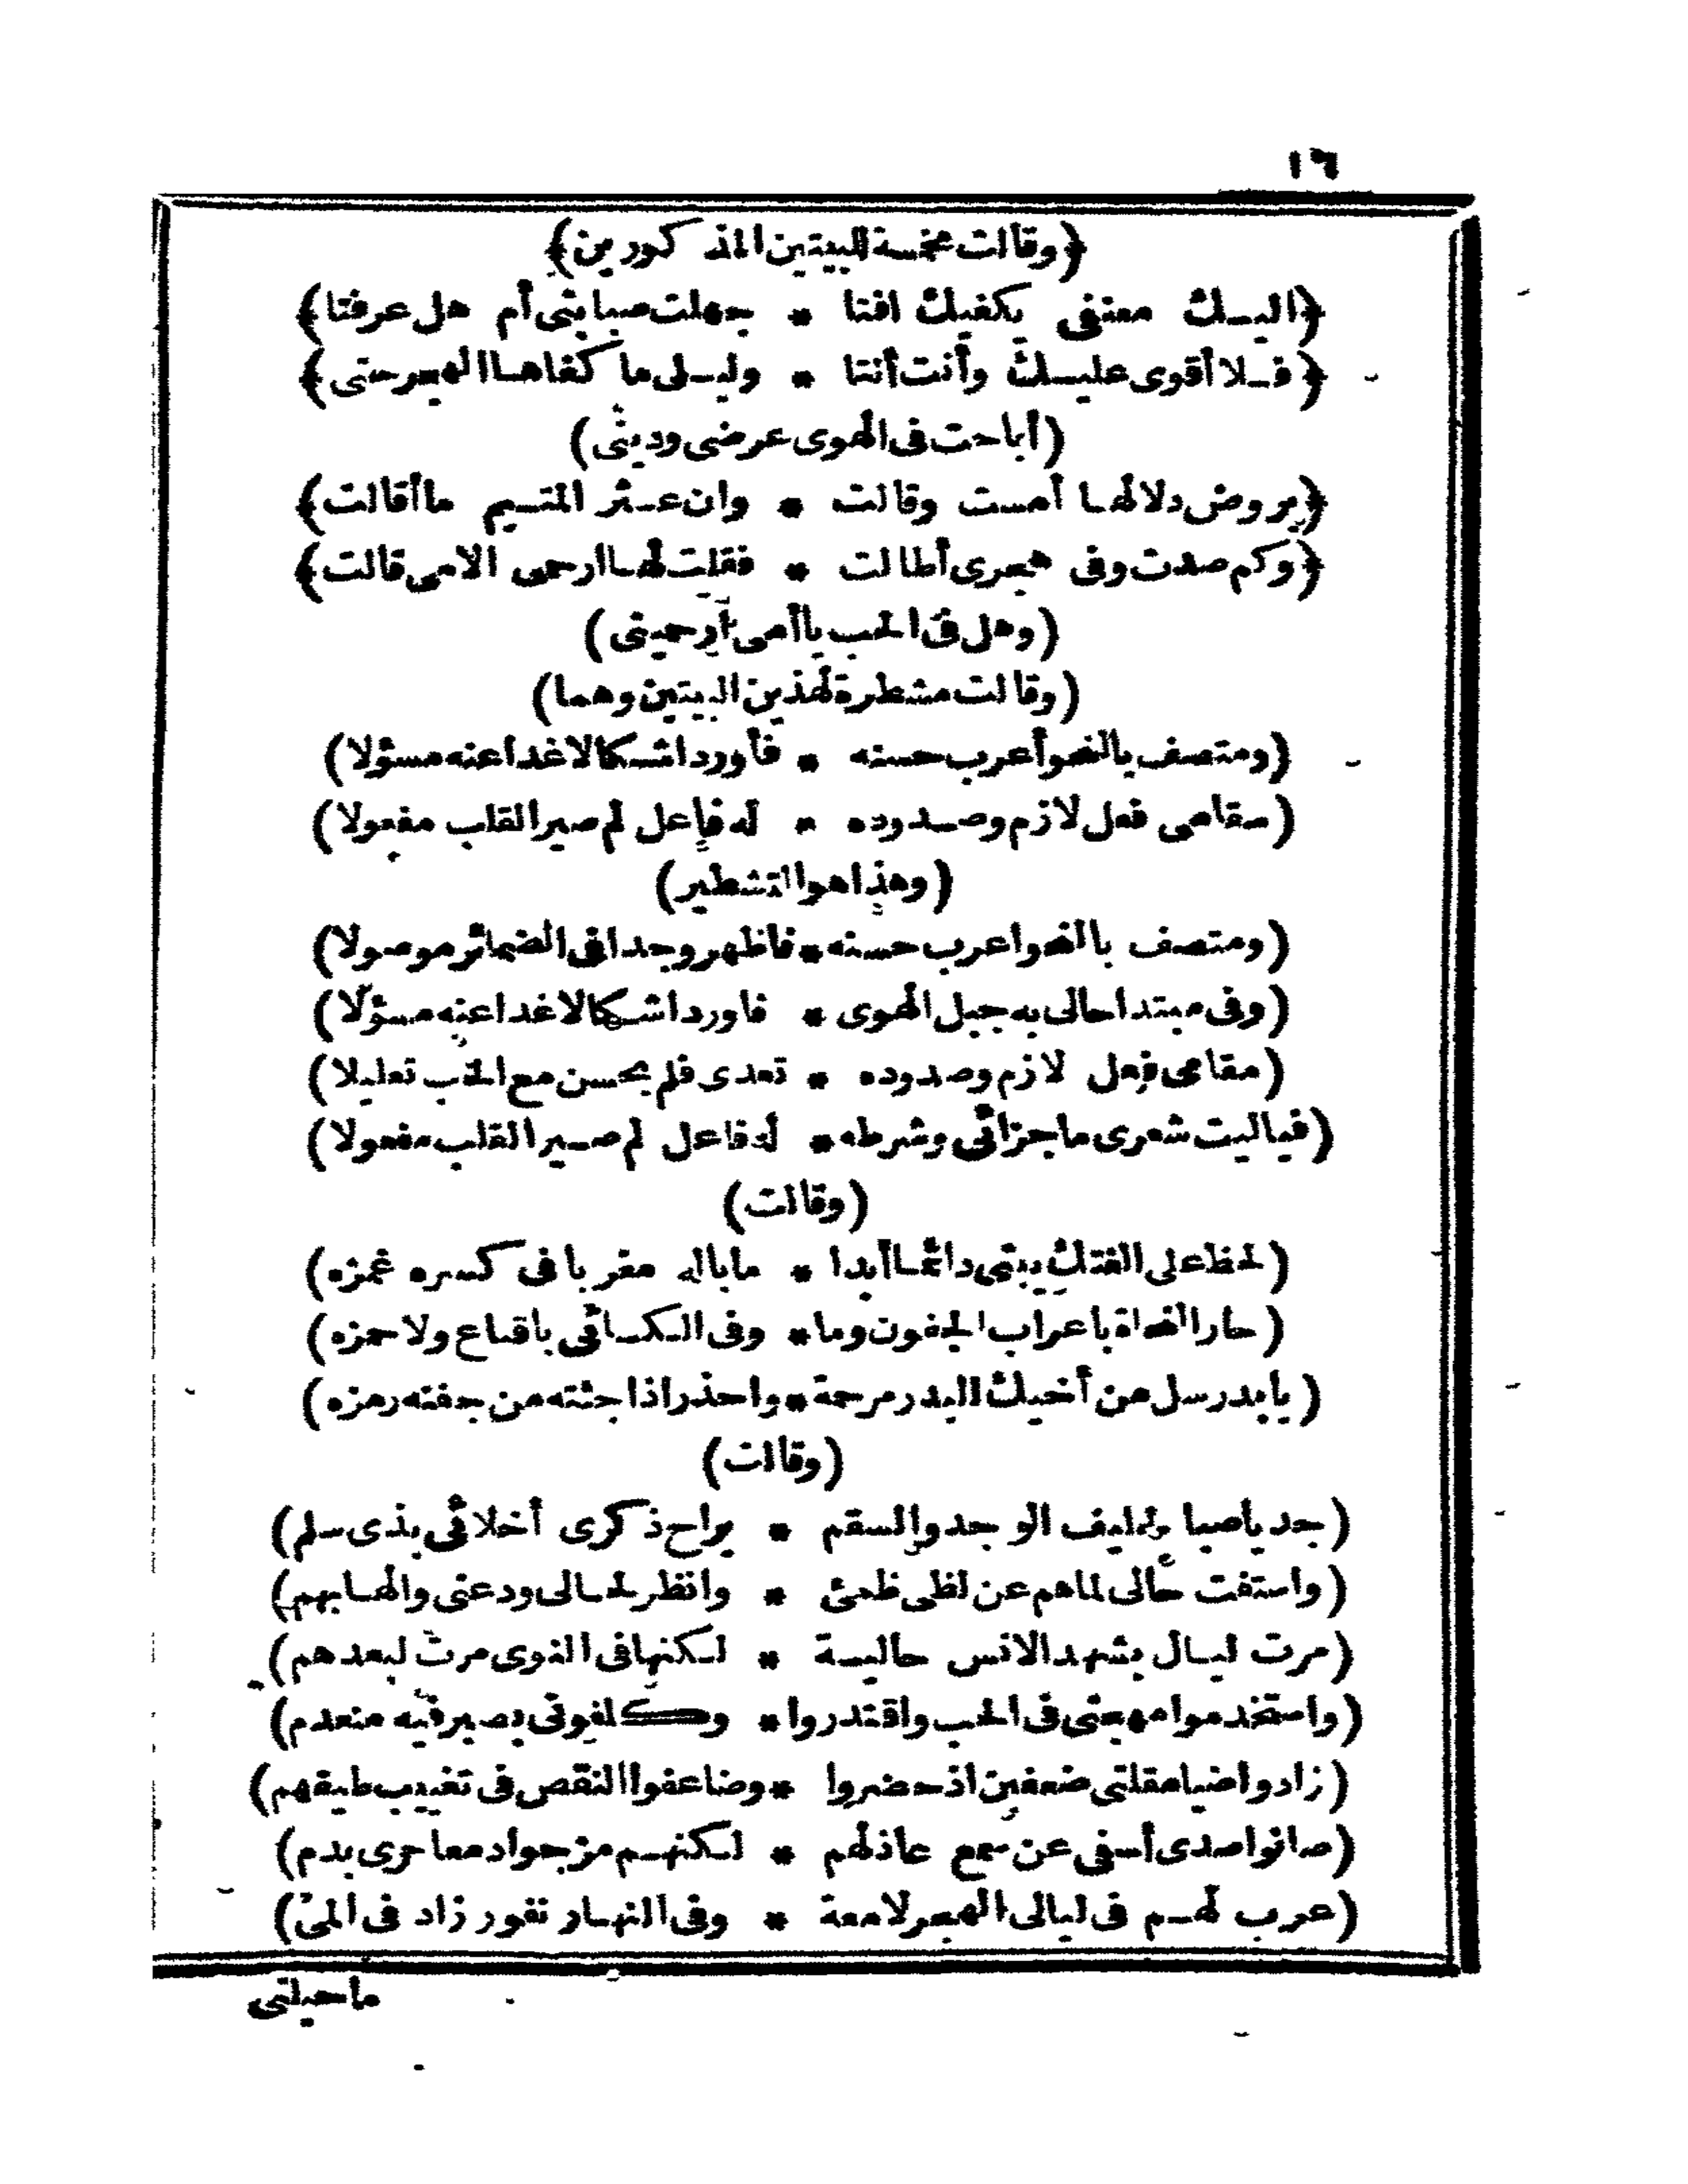 ١٦
﴿وقالت مخمسة البيتين المذكورين﴾
﴿اليك معنفى يكفيك افتا * جهلت صبابتى أم هل عرفتا﴾
﴿فلا أقوى عليك وأنت أنتا * وليلى ما كفاها الهجر حتى﴾
(أباحت فى الهوى عرضى ودينى)
﴿بروض دلالها أمست وقالت * وان عثر المتيم ما أقالت﴾
﴿وكم صدت وفى هجرى أطالت * فقلت لها ارحمى الامى قالت﴾
(وهل فى الحب يا أمى ارحمينى)
(وقالت مشطرة لهذين البيتين وهما)
(ومتصف بالنحو أعرب حسنه * فأورد اشكالا غدا عنه مسؤلا)
(سقامى فعل لازم وصدوده * له فاعل لم صير القلب مفعولا)
(وهذا هو التشطير)
(ومتصف بالنحو اعرب حسنه * فاظهر وجدا فى الضمائر موصولا)
(وفى مبتدا حالى به جبل الهوى * فاورد اشكالا غدا عنه مسؤلا)
(مقامى فعل لازم وصدوده * تعدى فلم يحسن مع الحب تعليلا)
(فياليت شعرى ما جزائى وشرطه * له فاعل لم صير القلب مفعولا)
(وقالت)
(لحظ على الفتك يبنى دائما أبدا * ما باله مغربا فى كسره غمزه)
(حار النحاة باعراب الجفون وما * وفى الكسائى باقناع ولا حمزه)
(يا بدر سل من أخيك البدر مرحمة * واحذر اذا جئته من جفنه رمزه)
(وقالت)
(جد يا صبا لحليف الوجد والسقم * براح ذكرى أخلائى بذى سلم)
(واستفت حالى لماهم عن لظى ظمئ * وانظر لحالى ودعنى والهابهم)
(مرت ليال بشهد الانس حالية * لكنها فى النوى مرت لبعدهم)
(واستخدموا مهجتى فى الحب واقتدروا * وكلفونى بصبر فيه منعدم)
(زادوا ضيا مقلتى ضعفين اذ حضروا * وضاعفوا النقص فى تغييب طيفهم)
(صانوا صدى أسفى عن سمع عاذلهم * لكنهم مزجوا دمعا جرى بدم)
(عرب لهم فى ليالى الهجر لامعة * وفى النهار نفور زاد فى المى)
ما حيلتى